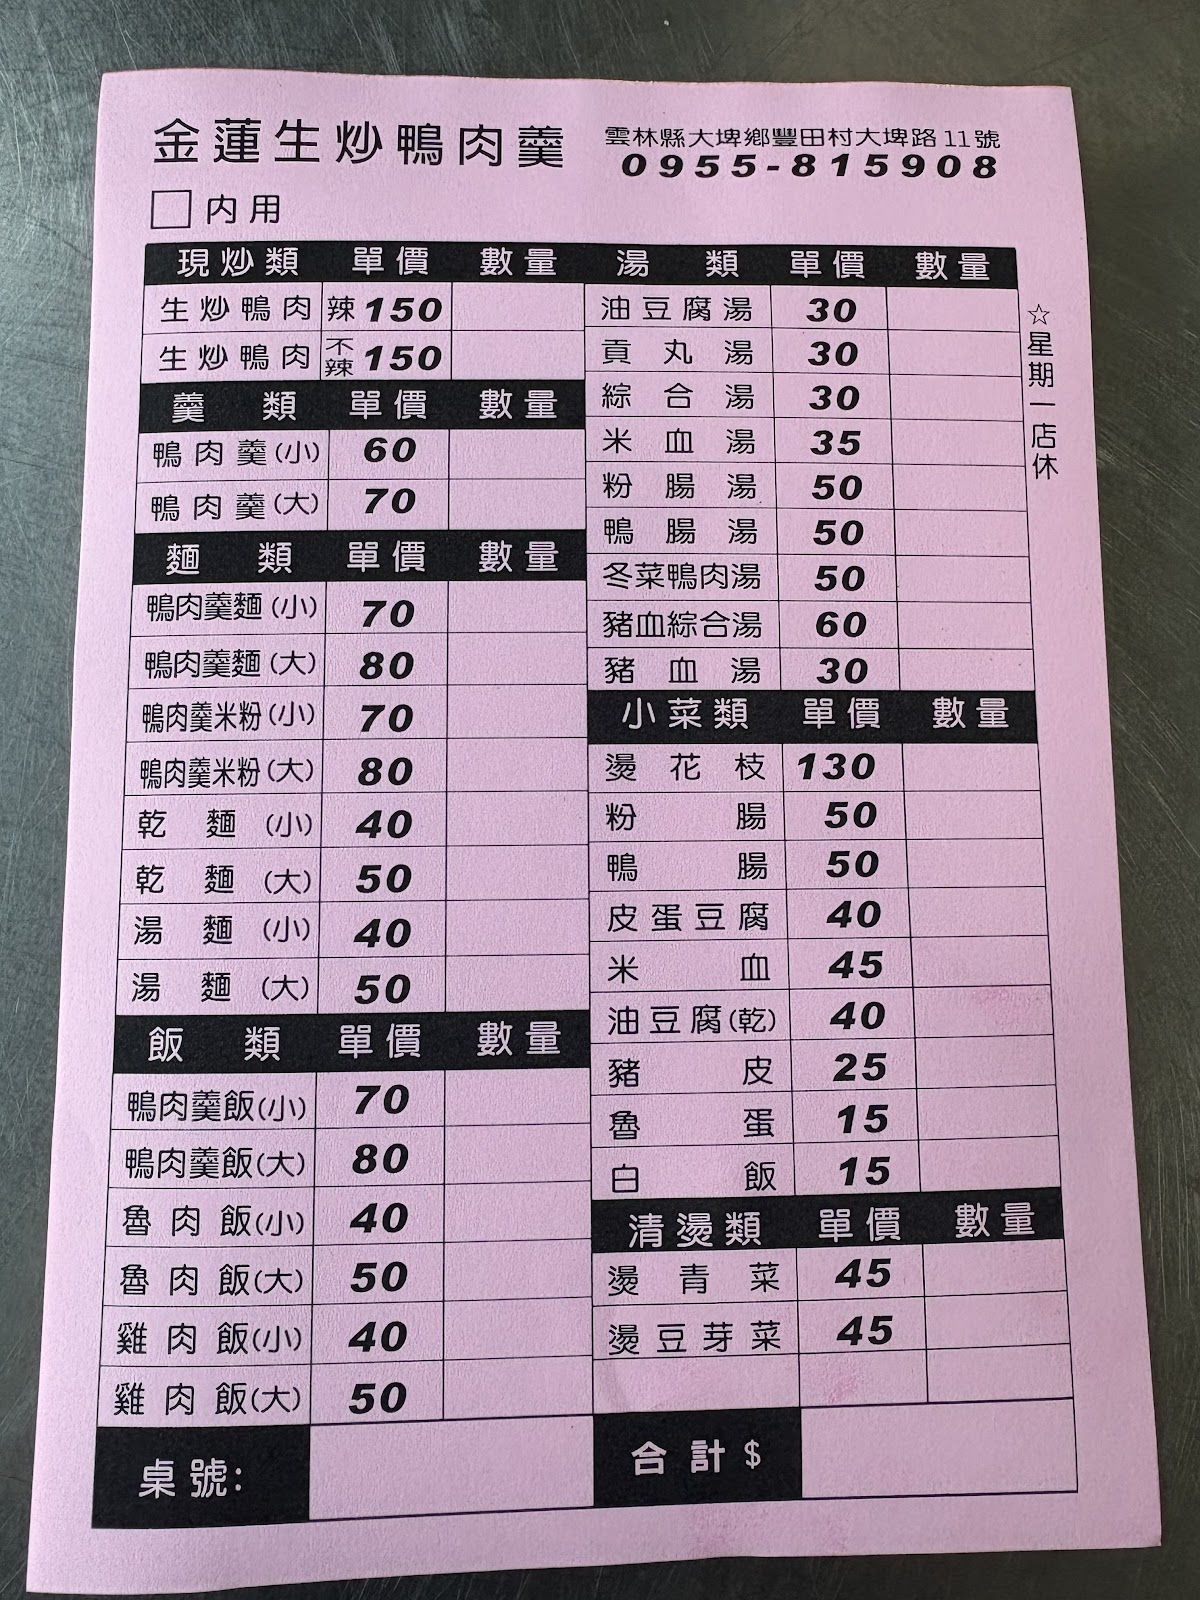 金蓮生炒鴨肉羹
雲林縣大埤鄉豐田村大埤路11號
0955-815908
內用
現炒類 單價 數量
生炒鴨肉 辣 150
生炒鴨肉 不辣 150
羹類 單價 數量
鴨肉羹(小) 60
鴨肉羹(大) 70
麵類 單價 數量
鴨肉羹麵(小) 70
鴨肉羹麵(大) 80
鴨肉羹米粉(小) 70
鴨肉羹米粉(大) 80
乾麵(小) 40
乾麵(大) 50
湯麵(小) 40
湯麵(大) 50
飯類 單價 數量
鴨肉羹飯(小) 70
鴨肉羹飯(大) 80
魯肉飯(小) 40
魯肉飯(大) 50
雞肉飯(小) 40
雞肉飯(大) 50
桌號:
湯類 單價 數量
油豆腐湯 30
貢丸湯 30
綜合湯 30
米血湯 35
粉腸湯 50
鴨腸湯 50
冬菜鴨肉湯 50
豬血綜合湯 60
豬血湯 30
小菜類 單價 數量
燙花枝 130
粉腸 50
鴨腸 50
皮蛋豆腐 40
米血 45
油豆腐(乾) 40
豬皮 25
魯蛋 15
白飯 15
清燙類 單價 數量
燙青菜 45
燙豆芽菜 45
合計$
☆星期一店休